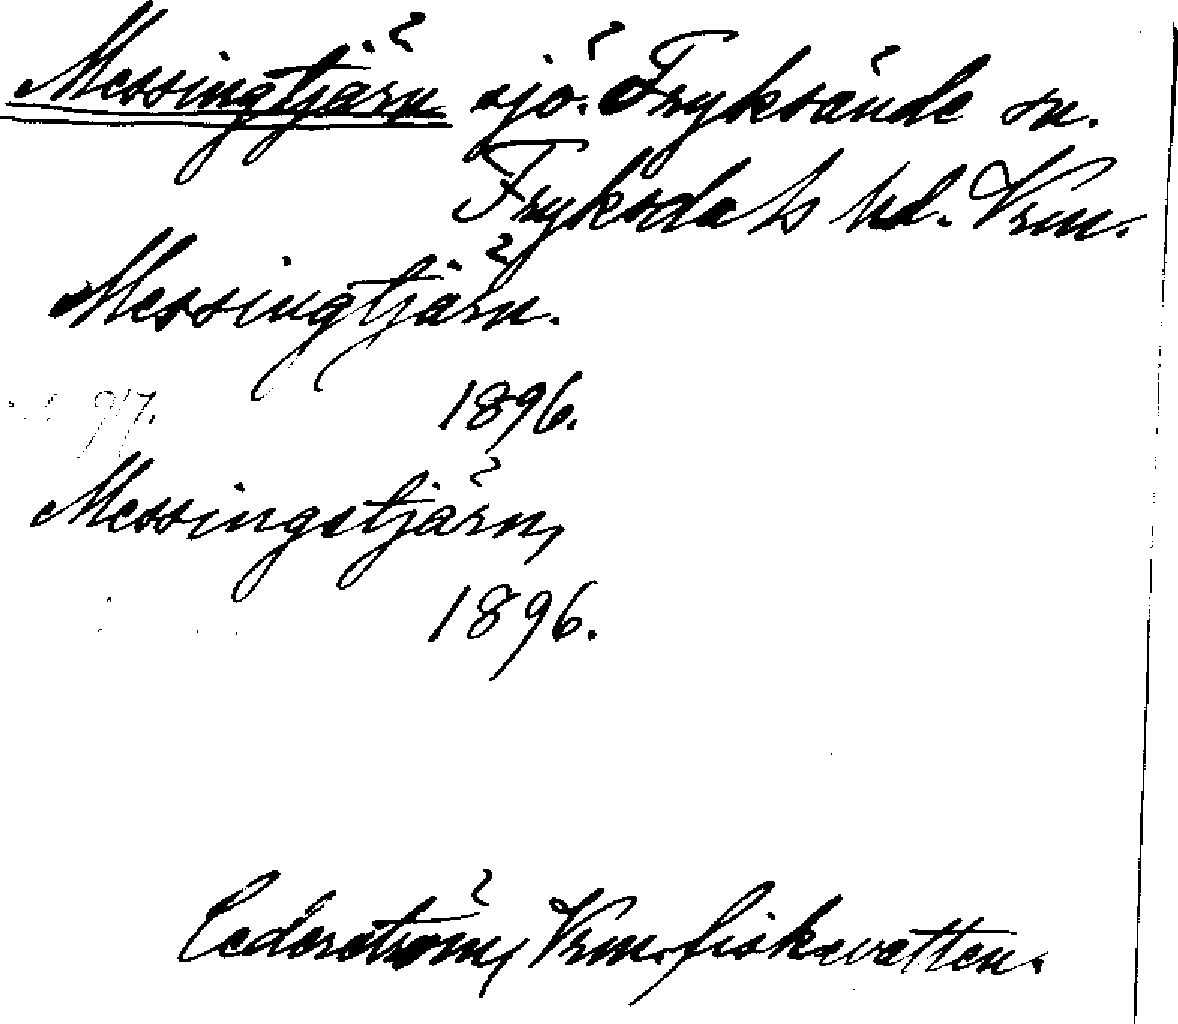 Messingtjärn sjö. Fryksände sn.
Fryksdals hd. Vrm.
Messingtjärn.
1896.
Messingstjärn,
1896.
Cederström, Vrm. fiskevatten.